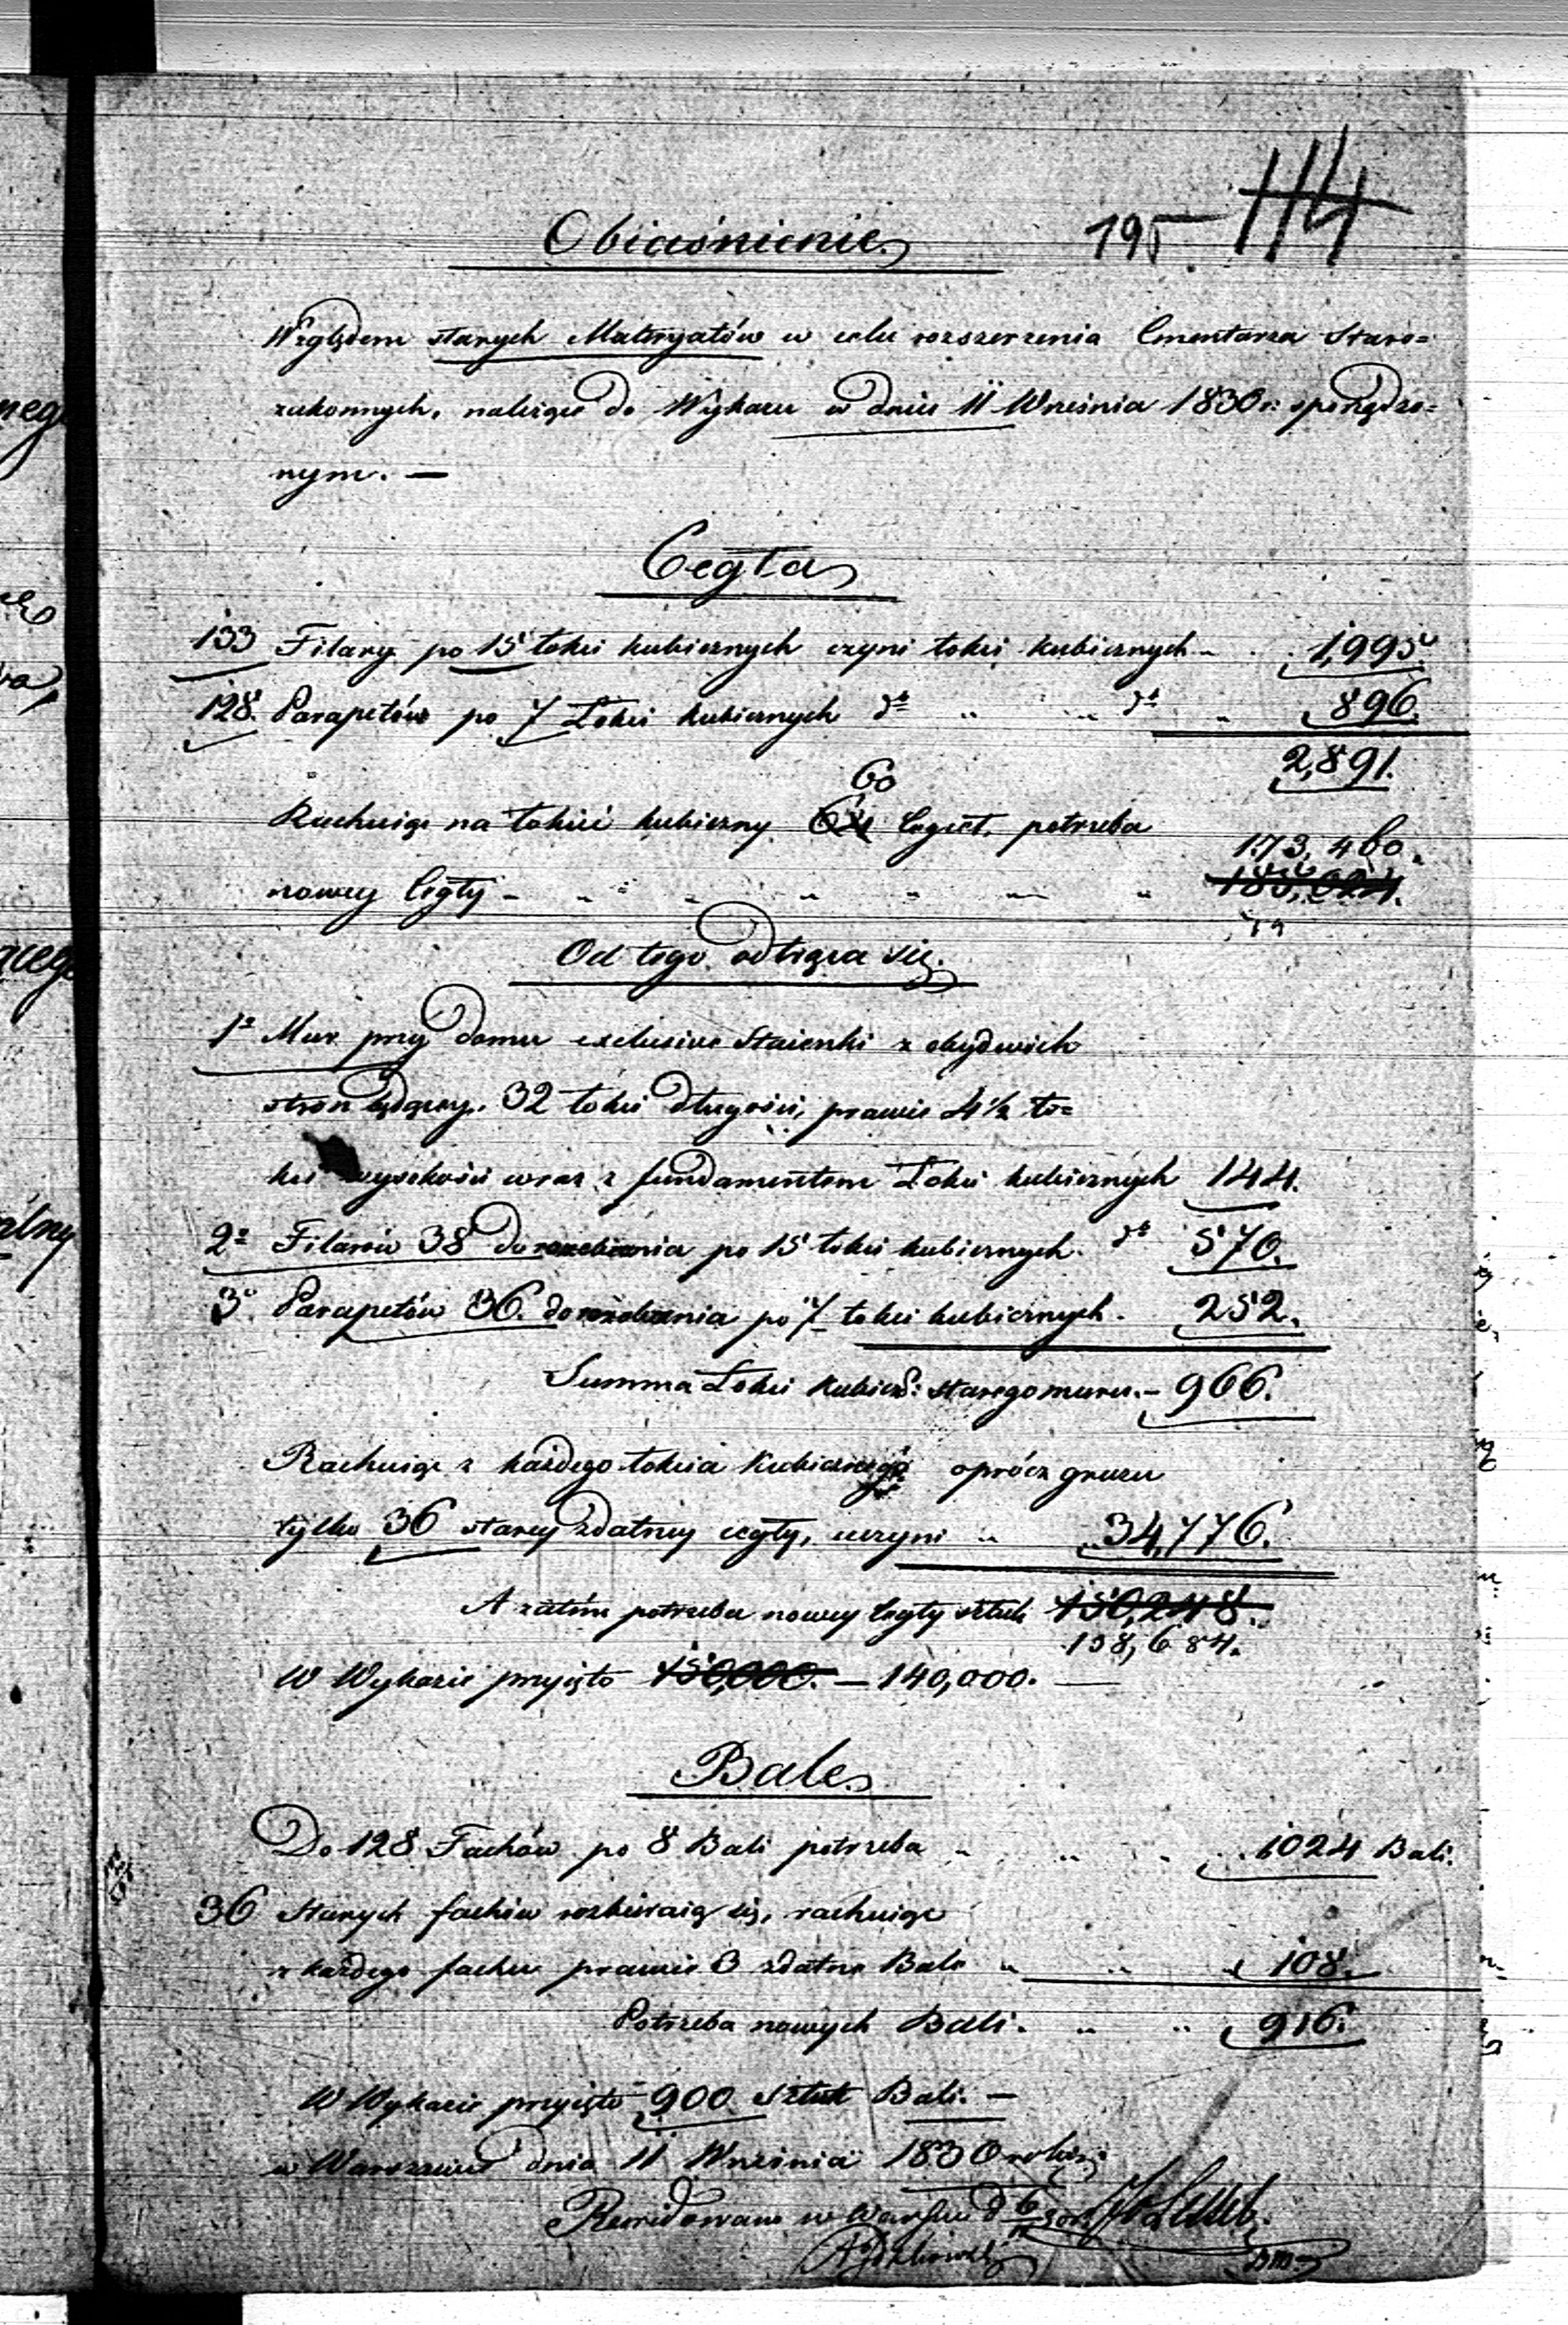 195 114
Obiaśnienie
Względem starych Materyałów w celu rozszerzenia Cmentarza Staro=
zakonnych, należące do Wykazu w dniu 11 Września 1830 r: sporządzo=
nym. —
Cegła
133 Filary po 15 łokci kubicznych czyni łokci kubicznych - . . 1,995
128. Parapetów po 7 Łokci kubicznych dto " " dto " 896.
2,891.
60
Rachuiąc na łokieć kubiczny 64 Cegieł, potrzeba
173,460.
nowey Cegły - " " " " " " " 185,024.
Od tego odtrąca się.
1º Mur przy domu exclusive Staienki z obydwóch
stron będący, 32 łokci długości, prawie 4½ ło=
kci wysokości wraz z fundamentem Łokci kubicznych 144.
2º Filarów 38 do rozebrania po 15 łokci kubicznych. dto 570.
3º Parapetów 36. do rozebrania po 7 łokci kubicznych. 252.
Summa Łokci kubicz: starego muru. - 966.
Rachuiąc z każdego łokcia kubicznego oprócz gruzu
tylko 36 starey zdatney cegły, uczyni " 34,776.
A zatém potrzeba nowey Cegły sztuk 150,248.
138,684.
W Wykazie przyięto 150,000. — 140,000. —
Bale
Do 128 Fachów po 8 Bali potrzeba " " " . . 1024 Bali.
36 Starych fachów rozbieraią się, rachuiąc
z każdego fachu prawie 3 zdatne Bale " " " 108.
Potrzeba nowych Bali. " " 916.
W Wykazie przyięto 900 Sztuk Bali. —
w Warszawie dnia 11 Września 1830 roku
Rewidowano w Warszwie d 6